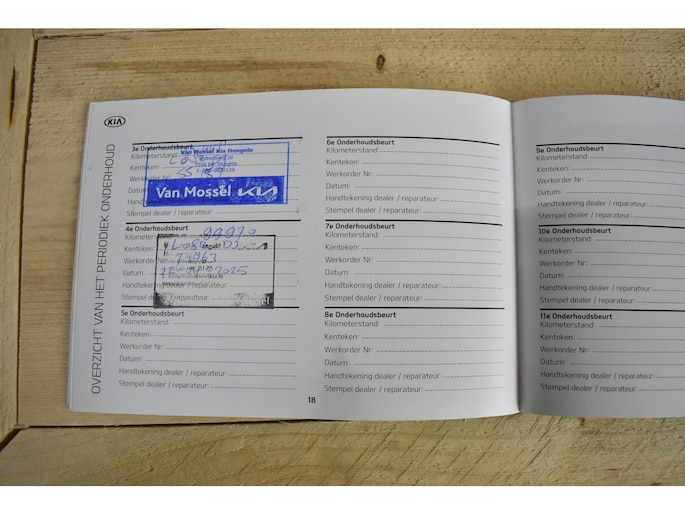 KIA
OVERZICHT VAN HET PERIODIEK ONDERHOUD
3e Onderhoudsbeurt
Van Mossel Kia Hengelo
Kilometerstand
Kenteken:
Werkorder Nr:
Van Mossel KIA
Handtekening
Stempel dealer / reparateur:
4e Onderhoudsbeurt
Kilometerstand: 99970
Kenteken:
Werkorder Nr: 73963
Datum: 2025
Handtekening dealer / reparateur:
Stempel dealer
5e Onderhoudsbeurt
Kilometerstand:
Kenteken:
Werkorder Nr:
Datum:
Handtekening dealer / reparateur:
Stempel dealer / reparateur:
6e Onderhoudsbeurt
Kilometerstand :
Kenteken:
Werkorder Nr:
Datum:
Handtekening dealer / reparateur:
Stempel dealer / reparateur:
7e Onderhoudsbeurt
Kilometerstand:
Kenteken:
Werkorder Nr:
Datum:
Handtekening dealer / reparateur:
Stempel dealer / reparateur:
8e Onderhoudsbeurt
Kilometerstand:
Kenteken:
Werkorder Nr:
Datum:
Handtekening dealer / reparateur:
Stempel dealer / reparateur:
18
9e Onderhoudsbeurt
Kilometerstand:
Kenteken:
Werkorder Nr:
Datum:
Handtekening dealer / reparateur:
Stempel dealer / reparateur:
10e Onderhoudsbeurt
Kilometerstand:
Kenteken:
Werkorder Nr:
Datum:
Handtekening dealer / reparateur:
Stempel dealer / reparateur:
11e Onderhoudsbeurt
Kilometerstand:
Kenteken:
Werkorder Nr:
Datum:
Handtekening dealer / reparateur:
Stempel dealer / reparateur: